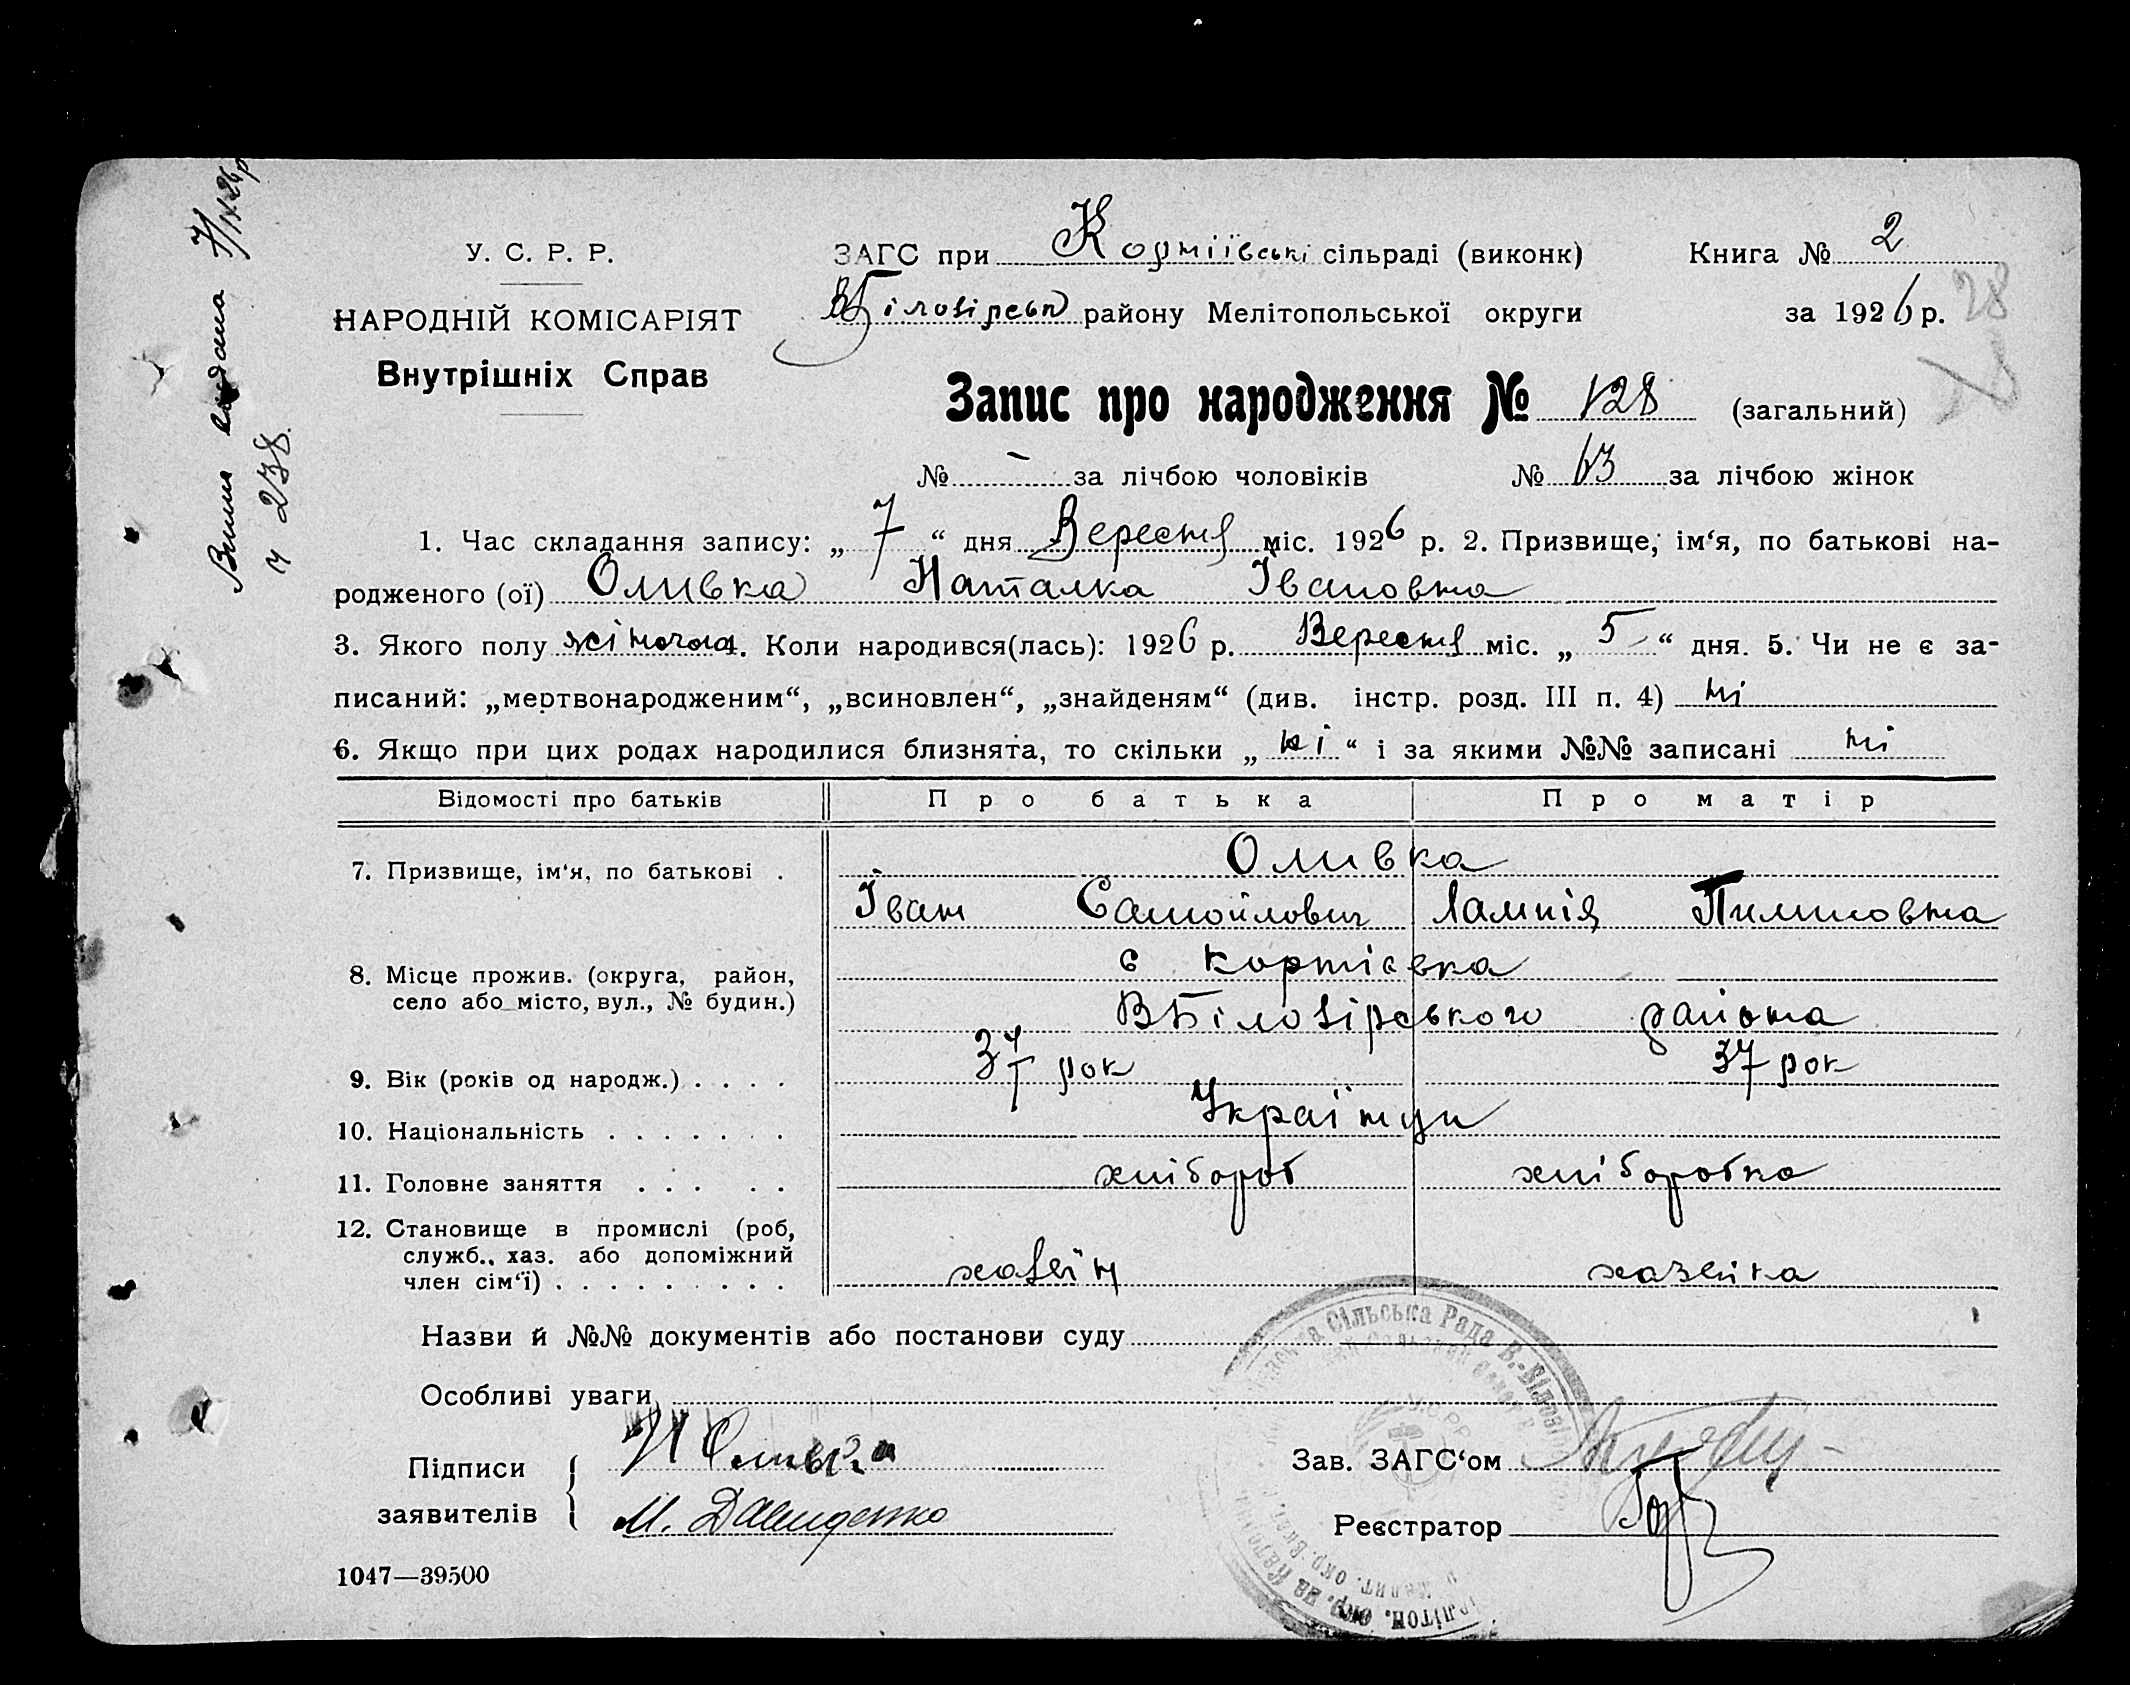 Випис видана 7/IX 26 р
ч 238.
У. С. Р. Р.
НАРОДНІЙ КОМІСАРІЯТ
Внутрішніх Справ
ЗАГС при сільраді (виконк)
ВБілозірськ району Мелітопольської округи
Книга № 2
за 1926 р. 28
Запис про народження № 128 (загальний)
№ - за лічбою чоловіків № 63 за лічбою жінок
1. Час складання запису: „ 7 “ дня Вересня міс. 1926 р. 2. Призвище, ім‘я, по батькові на-
родженого (ої) Оливка Наталка Івановна
3. Якого полу жіночоа. Коли народився(лась): 1926 р. Вересня міс. „ 5 “ дня. 5. Чи не є за-
писаний: „мертвонародженим“, „всиновлен“, „знайденям“ (див. інстр. розд. III п. 4) ні
6. Якщо при цих родах народилися близнята, то скільки „ ні “ і за якими №№ записані ні
Відомості про батьків Про батька Про матір
7. Призвище, ім‘я, по батькові . Оливка
Іван Самойлович Лампія Пилиповна
8. Місце прожив. (округа, район,
село або місто, вул., № будин.)
с
ВБілозірського района
9. Вік (років од народж.) . . . . 37 рок 37 рок
10. Національність . . . . . . . Українци
11. Головне заняття . . . . . хлібороб хліборобка
12. Становище в промислі (роб,
служб., хаз. або допоміжний
член сім‘ї) . . . . . . . . . хазеїн хазейка
Назви й №№ документів або постанови суду
Особливі уваги
Підписи
заявителів
И Оливка
М. Давиденко
Зав. ЗАГС‘ом
Реєстратор
Сільська Рада В.-Білозір
У.С.Р.Р.
1047—39500